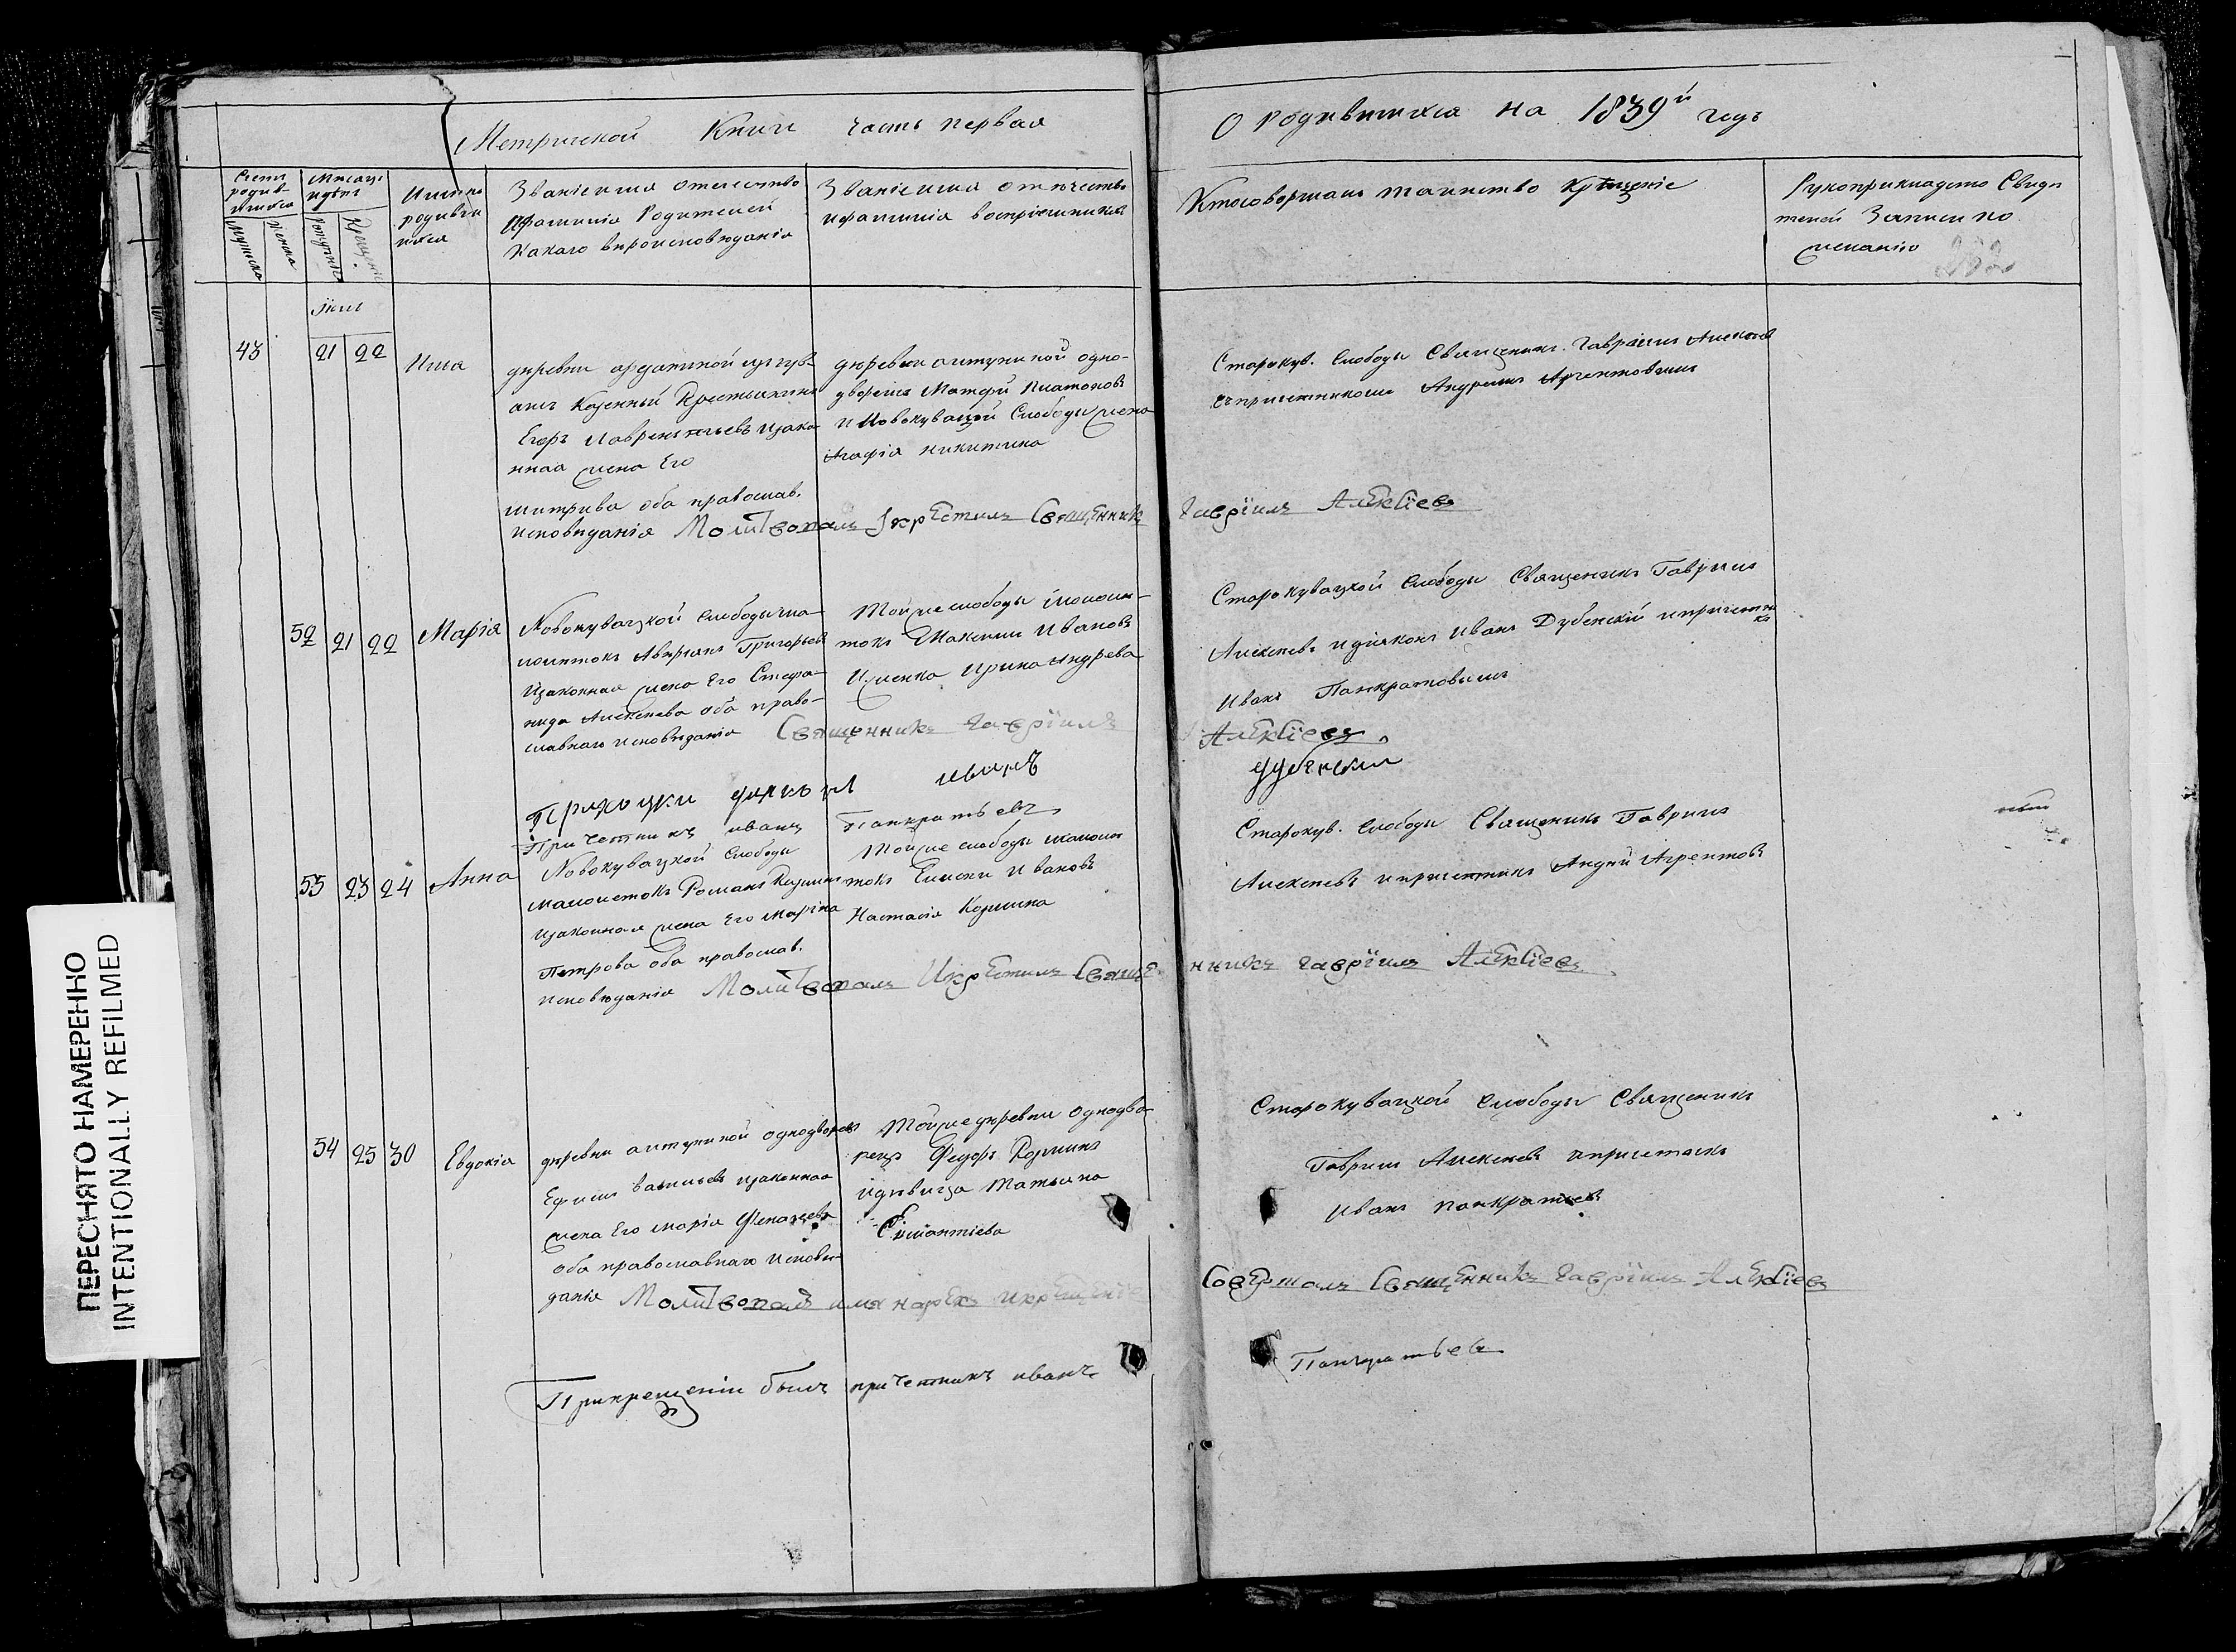 Метрической Книги часть первая
О родившихся на 1839й годъ
Счетъ родив-
шихся
мужеска
женска
Месяцъ
рожденія
Крещенія
Имена
родивши
хся
Званіе имя отечество
и фамилія Родителей
Какаго вероисповеданія
Званіе имя отечество
и фамилія воспріемниковъ
Кто совершалъ таинство Крещеніе
Рукоприкладство Свиде
телей Записи по
желанію
282
Іюль
43 21 22
деревни
Казенный Крестьянинъ
Егоръ Лаврентьевъ изако
нная жена Его
Митрева оба православ.
исповеданія
деревни алтупиной одно-
дворецъ Матфей Платоновъ
и Новокувацкой Слободы жена
Агафія никитина
Старокув. Слободы Священникъ Гавріилъ Алексеевъ
съпричетникомъ Андреемъ Аргентовымъ
Молитвовалъ Iкрестилъ Священникъ Гавріилъ Алексіевъ
52 21 22 Марія
Новокувацкой слободы ма-
лолетокъ Аверьянъ Григорьевъ
изаконная жена Его Стефа-
нида Алексеева оба право-
славнаго исповеданія
Той же слободы малоле-
токъ Максимъ Ивановъ
и женка Ирина Андрева
Старокувацкой слободы Священикъ Гаврилъ
Алексеевъ идіяконъ Иванъ Дубенскій ипричетни
къ
Иванъ Панкратовымъ
Священникъ Гавріилъ Алексіевъ
иванъ
Причетникъ иванъ Панкратьевъ
53 23 24 Анна
Новокувацкой слободы
малолетокъ Романъ Козминъ
изаконная жена Его Марина
Петрова оба православ.
исповеданія
Той же слободы малоле
токъ Елисеи Ивановъ
Настасія Козмина
Старокув. слободы Священикъ Гаврилъ
Алексеевъ ипричетникъ Андрей Аргентовъ
Молитвовалъ Икрестилъ Священникъ Гавріилъ Алексіевъ
54 25 30 Евдокія
деревни алтупиной однодворецъ
Ефимъ Васильевъ изаконная
жена Его марія
оба православнаго исповѣ-
данія
Той же деревни однодво-
рецъ Федоръ Козминъ
идевица Татьяна
Старокувацкой слободы Священикъ
Гаврилъ Алексеевъ ипричетникъ
Иванъ панкратьевъ
Молитвовалъ имя нарекъ икрещеніе Совершалъ Священникъ Гавріилъ Алексіевъ
Прикрещеніи былъ причетникъ иванъ Панкратьевъ
ПЕРЕСНЯТО НАМЕРЕННО
INTENTIONALLY REFILMED